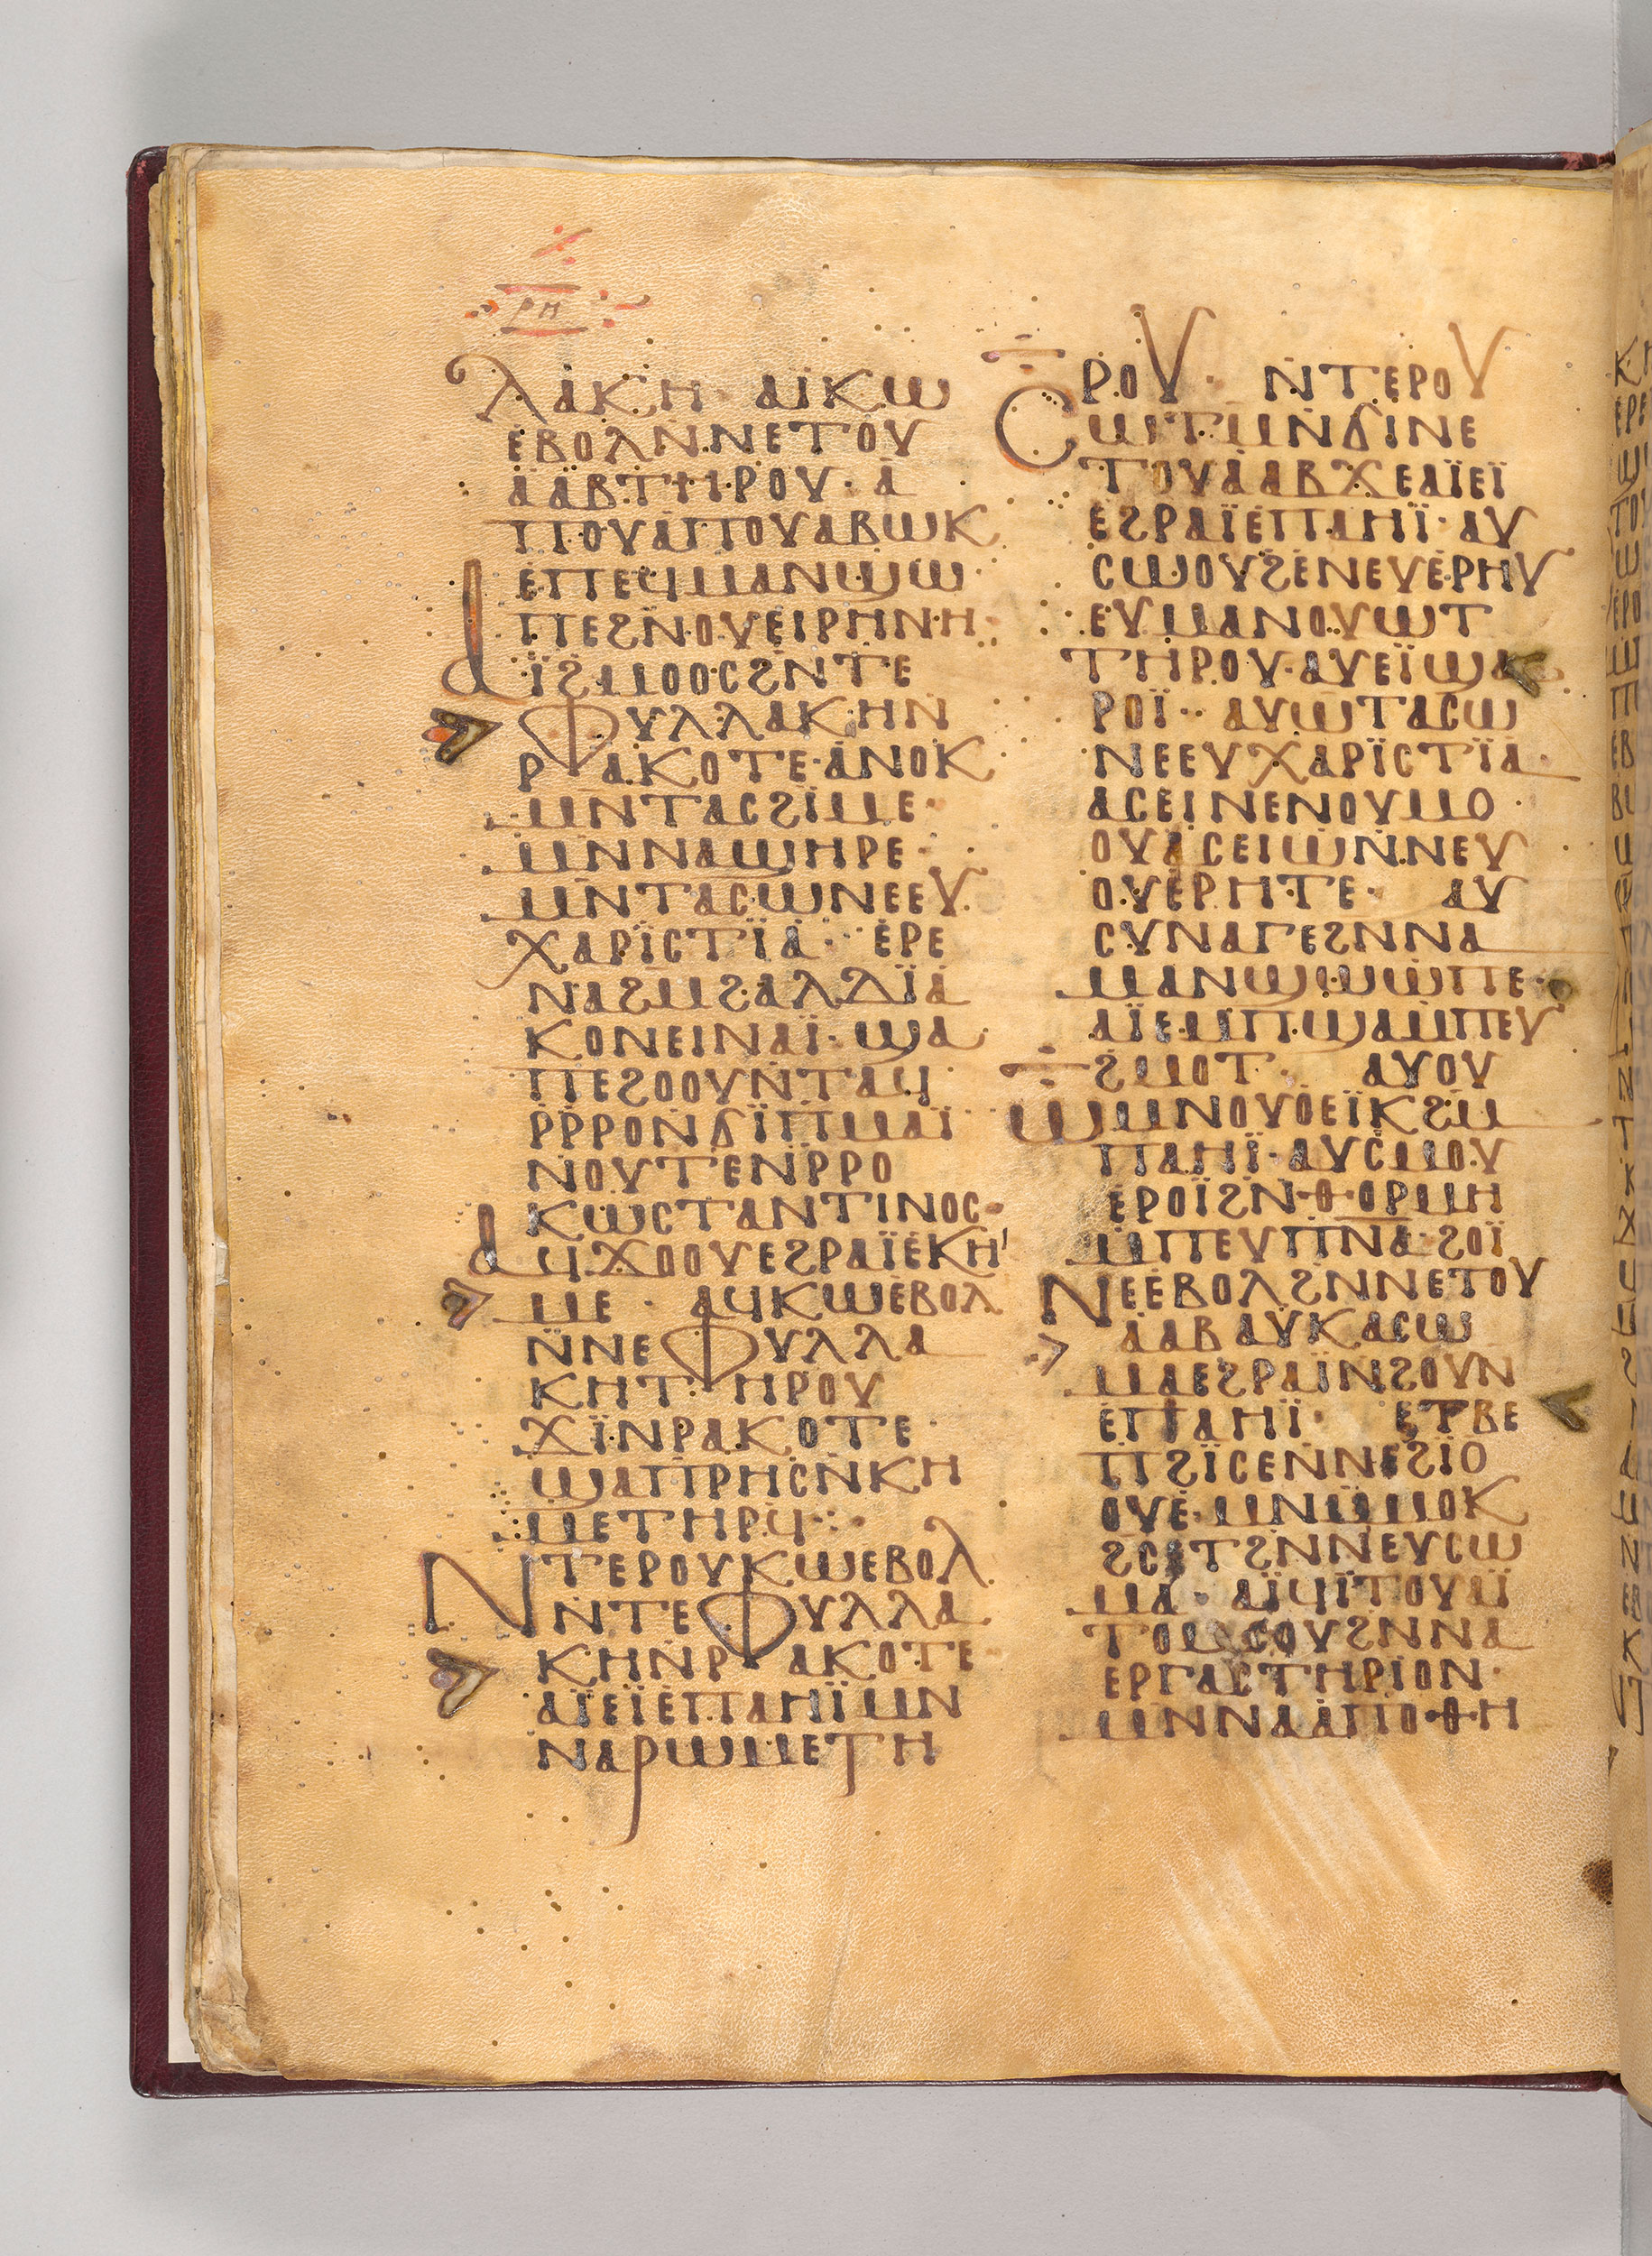 ⲣⲏ
ⲗⲁⲕⲏ· ⲁⲓ̈ⲕⲱ
ⲉⲃⲟⲗⲛ̄ⲛⲉⲧⲟⲩ
ⲁ̇ⲁ̈ⲃⲧⲏⲣⲟⲩ· ⲁ̇
ⲡⲟⲩⲁⲡⲟⲩⲁⲃⲱⲕ
ⲉ̇ⲡⲉϥⲙⲁⲛϣⲱ
ⲡⲉϩⲛ̇ⲟⲩⲉⲓⲣⲏⲛⲏ·
ⲁⲓ̈ϩⲙⲟⲟⲥϩⲛ̇ⲧⲉ
ⲫⲩⲗⲗⲁⲕⲏⲛ̇
ⲣⲁⲕⲟⲧⲉ·ⲁⲛⲟⲕ
ⲙⲛ̄ⲧⲁⲥϩⲓⲙⲉ·
ⲙⲛ̄ⲛⲁϣⲏⲣⲉ·
ⲙⲛ̄ⲧⲁⲥⲱⲛⲉⲉⲩ
ⲭⲁⲣⲓ̈ⲥⲧⲓ̈ⲁ· ⲉ̇ⲣⲉ
ⲛⲁϩⲙ̄ϩⲁⲗⲇⲓ̈ⲁ
ⲕⲟⲛⲉⲓⲛⲁⲓ̈·ϣⲁ
ⲡⲉϩⲟⲟⲩⲛ̇ⲧⲁϥ
ⲣ̄ⲣ̄ⲣⲟⲛ̇ϭⲓ̈ⲡⲙⲁⲓ̈
ⲛⲟⲩⲧⲉⲛ̇ⲣ̄ⲣⲟ
ⲕⲱⲥⲧⲁⲛⲧⲓⲛⲟⲥ·
ⲁϥϫⲟⲟⲩⲉϩⲣⲁⲓ̈ⲉ̇ⲕⲏ
ⲙⲉ· ⲁϥⲕⲱⲉ̇ⲃⲟⲗ
ⲛ̄ⲛⲉⲫⲩⲗⲗⲁ
ⲕⲏⲧⲏⲣⲟⲩ
ϫⲓ̈ⲛⲣⲁⲕⲟⲧⲉ·
ϣⲁⲡⲣⲏⲥⲛ̇ⲕⲏ
ⲙⲉⲧⲏⲣϥ̇·
ⲛⲧⲉⲣⲟⲩⲕⲱⲉⲃⲟⲗ
ⲛ̄ⲛ̇ⲧⲉⲫⲩⲗⲗⲁ
ⲕⲏⲛ̇ⲣⲁⲕⲟⲧⲉ·
ⲁⲓ̈ⲉⲓ̈ⲉ̇ⲡⲁⲏⲓ̈ⲙⲛ̄
ⲛⲁⲣⲱⲙⲉⲧⲏ
ⲣⲟⲩ· ⲛ̇ⲧⲉⲣⲟⲩ
ⲥⲱⲧⲙ̄ⲛ̇ϭⲓⲛⲉ
ⲧⲟⲩⲁⲁⲃϫⲉⲁⲓ̈ⲉⲓ̈
ⲉ̇ϩⲣⲁⲓ̈ⲉ̇ⲡⲁⲏⲓ̈·ⲁⲩ
ⲥⲱⲟⲩϩⲉ̇ⲛⲉⲩⲉ̇ⲣⲏⲩ
ⲉⲩⲙⲁⲛⲟⲩⲱⲧ
ⲧⲏⲣⲟⲩ·ⲁⲩⲉⲓ̈ϣⲁ
ⲣⲟⲓ̈·· ⲁⲩⲱⲧⲁⲥⲱ
ⲛⲉⲉⲩⲭⲁⲣⲓ̈ⲥⲧⲓ̈ⲁ·
ⲁⲥⲉⲓⲛⲉⲛⲟⲩⲙⲟ·
ⲟⲩⲁⲥⲉⲓⲱⲛ̇ⲛⲉⲩ
ⲟⲩⲉ̇ⲣⲏⲧⲉ· ⲁⲩ
ⲥⲩⲛⲁⲅⲉϩⲛⲛⲁ
ⲙⲁⲛϣⲱⲱⲡⲉ·
ⲁⲓ̈ⲉⲙⲡ̄ϣⲁⲙ̄ⲡⲉⲩ
ϩⲙⲟⲧ· ⲁⲩⲟⲩ
ⲱⲙⲛⲟⲩⲟⲉⲓ̈ⲕϩⲙ̄
ⲡⲁⲏⲓ̈·ⲁⲩⲥⲙⲟⲩ
ⲉ̇ⲣⲟⲓ̈ϩⲛ̇ⲑⲟⲣⲙⲏ
ⲙ̄ⲡⲉⲩⲡⲛ̄ⲁ·ϩⲟⲓ̈
ⲛⲉⲉ̇ⲃⲟⲗϩⲛ̄ⲛⲉⲧⲟⲩ
ⲁ̇ⲁⲃⲁⲩⲕⲁⲥⲱ
ⲙⲁⲉϩⲣⲁⲓ̈ⲛ̇ϩⲟⲩⲛ
ⲉ̇ⲡⲁⲏⲓ̈· ⲉⲧⲃⲉ
ⲡϩⲓ̈ⲥⲉⲛ̇ⲛⲉϩⲓⲟ
ⲟⲩⲉ̇·ⲙⲛ̄ⲙ̄ⲙⲟⲕ
ϩⲥⲉⲧϩⲛ̄ⲛⲉⲩⲥⲱ
ⲙⲁ· ⲁⲓ̈ϥⲓ̈ⲧⲟⲩⲁⲓ̈
ⲧⲟⲙⲥⲟⲩϩⲛ̄ⲛⲁ
ⲉⲣⲅⲁⲥⲧⲏⲣⲓⲟⲛ·
ⲙⲛ̄ⲛⲁⲁ̇ⲡⲟⲑⲏ